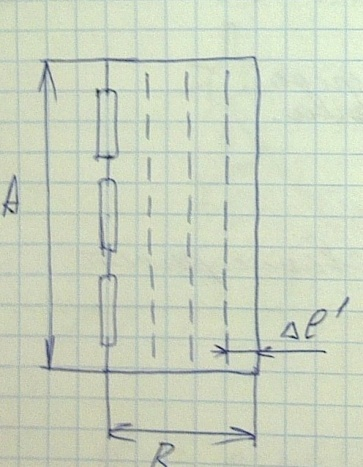 A
Δℓ'
R